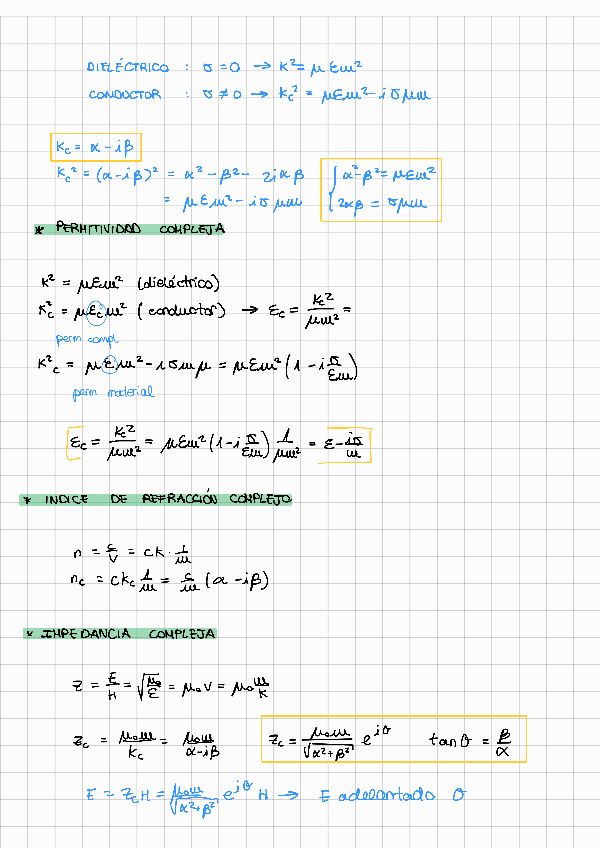 DIELÉCTRICO : σ = 0 → K² = μεω²
CONDUCTOR : σ ≠ 0 → Kc² = μεω² - iσμω
Kc = α - iβ
Kc² = (α - iβ)² = α² - β² - 2iαβ
= μεω² - iσμω
{ α² - β² = μεω²
2αβ = σμω
* PERMITIVIDAD COMPLEJA
K² = μεω² (dieléctrico)
Kc² = μεcω² (conductor) → εc = Kc²/μω² =
perm compl
K²c = μεω² - iσωμ = μεω² (1 - i σ/εω)
perm material
εc = Kc²/μω² = μεω² (1 - i σ/εω) 1/μω² = ε - iσ/ω
* INDICE DE REFRACCIÓN COMPLEJO
n = c/v = ck · 1/ω
nc = ckc 1/ω = c/ω (α - iβ)
* IMPEDANCIA COMPLEJA
Z = E/H = √(μ₀/ε) = μ₀v = μ₀ ω/K
Zc = μ₀ω/Kc = μ₀ω/(α - iβ)
Zc = μ₀ω/√(α² + β²) e^(jθ) tanθ = β/α
E = ZcH = μ₀ω/√(α² + β²) e^(jθ) H → E adelantado θ